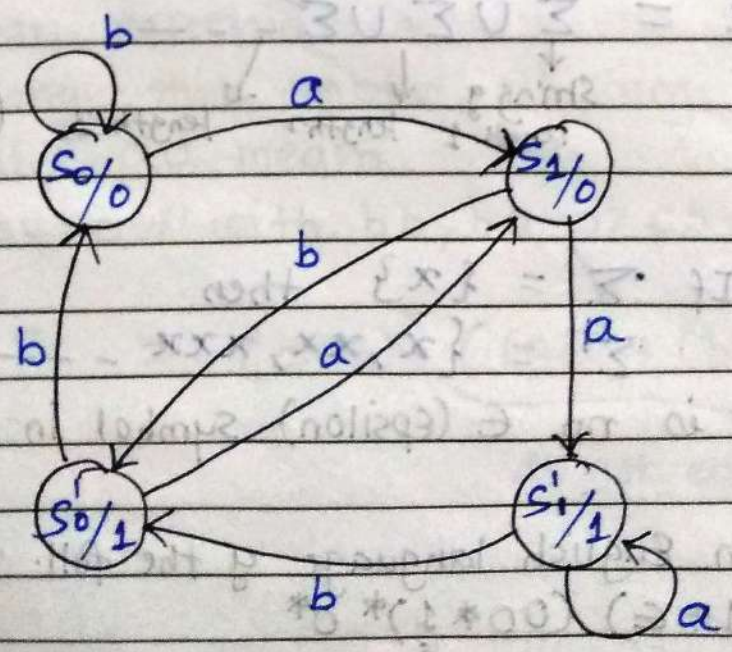 b
a
S0/0
S1/0
b
b
a
a
S'0/1
S'1/1
b
a